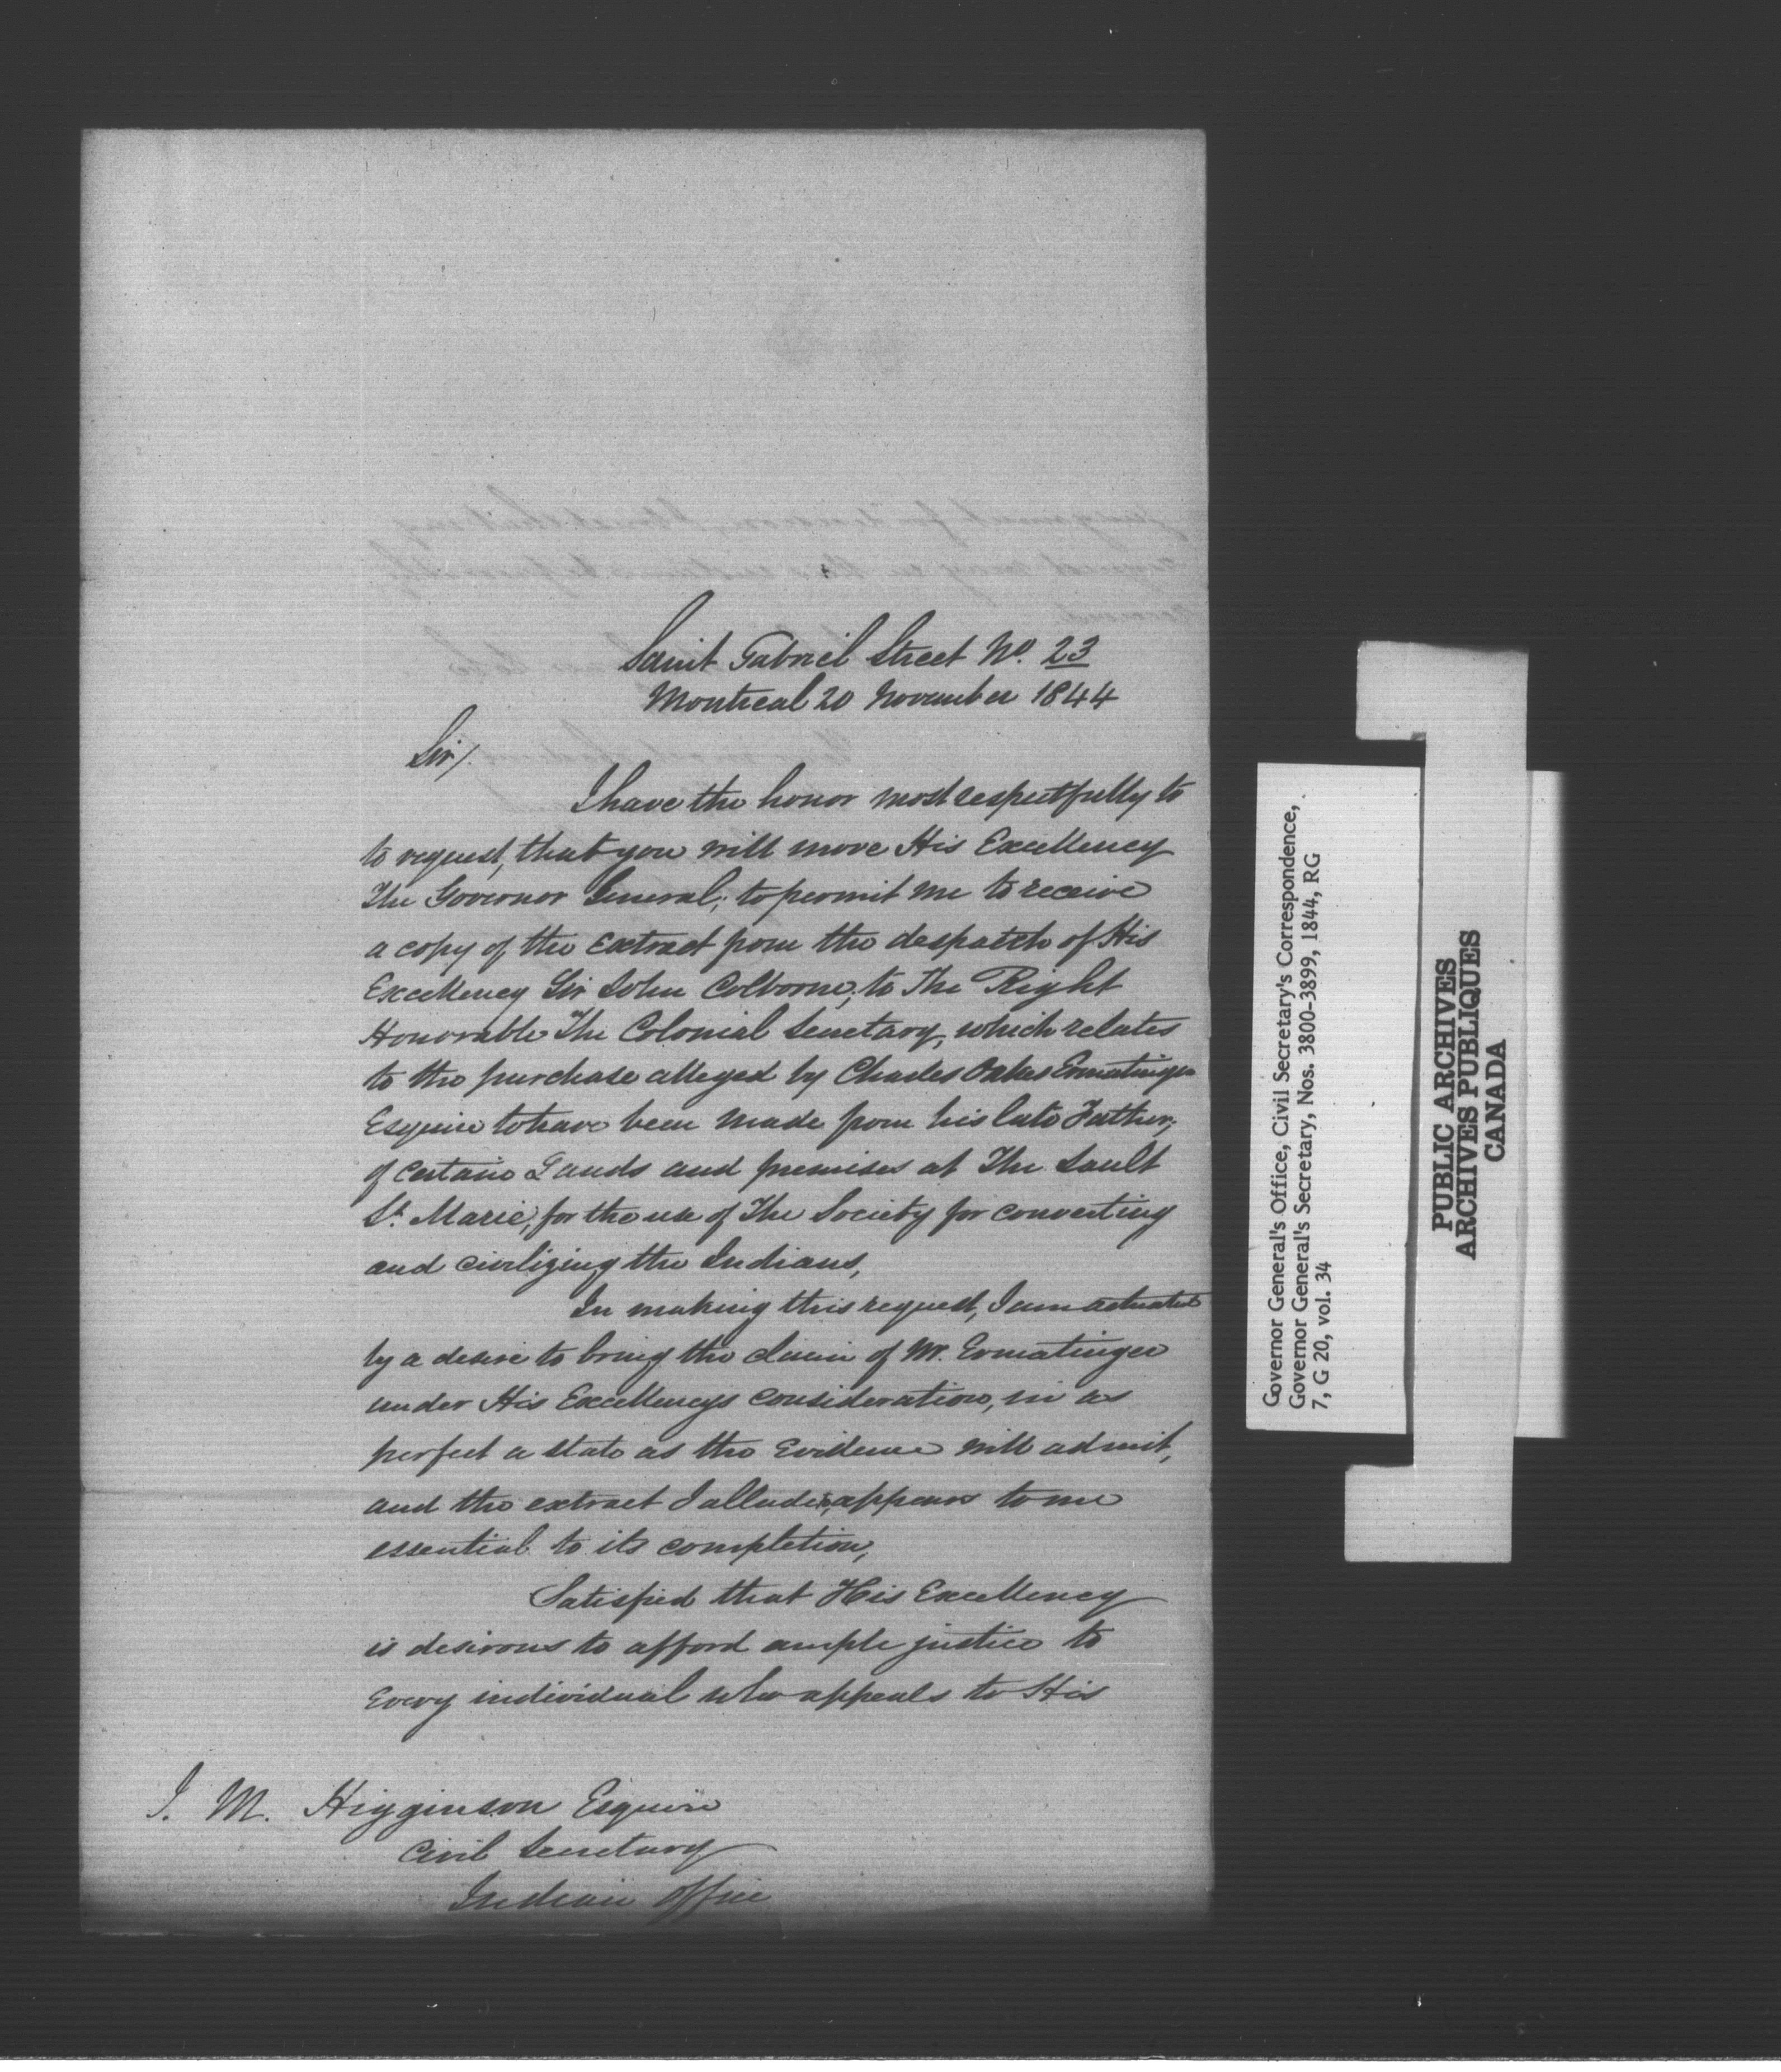 Saint Gabriel Street No. 23
Montreal 20 November 1844
Sir/.
I have the honor most respectfully to
to request, that you will move His Excellency
The Governor General; to permit me to receive
a copy of the extract from the despatch of His
Excellency Sir John Colborne; to The Right
Honorable The Colonial Secretary, which relates
to the purchase alleged by Charles Oakes Ermatinger
Esquire to have been made from his late Father;
of certain Lands and premises at The Sault
St. Marie, for the use of The Society for converting
and civilizing the Indians,
In making this request, I am actuated
by a desire to bring the claim of Mr. Ermatinger
under His Excellencys consideration, in as
perfect a state as the Evidence will admit,
and the extract I allude to, appears to me
essential to its completion,
Satisfied that His Excellency
is desirous to afford ample justice to
Every individual who appeals to His
J. M. Higginson Esquire
Civil Secretary
Indian Office
Governor General's Office, Civil Secretary's Correspondence,
Governor General's Secretary, Nos. 3800-3899, 1844, RG
7, G 20, vol. 34
PUBLIC ARCHIVES
ARCHIVES PUBLIQUES
CANADA